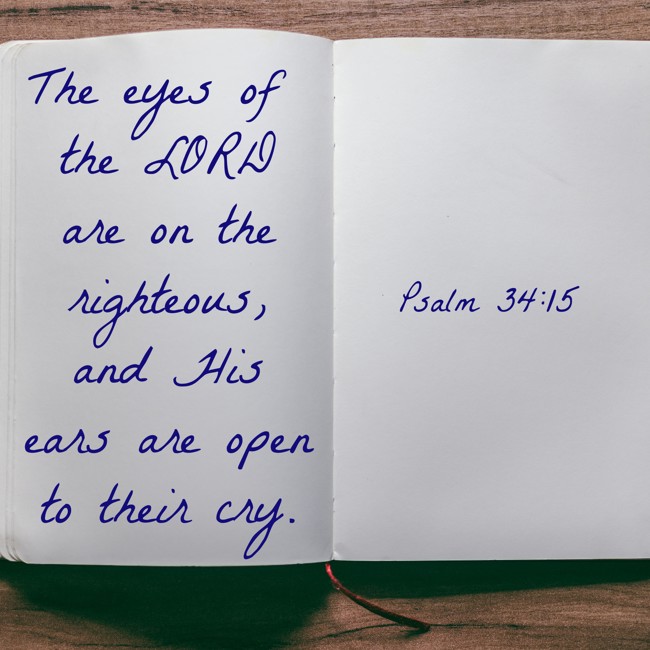 The eyes of
the LORD
are on the
righteous,
and His
ears are open
to their cry.
Psalm 34:15